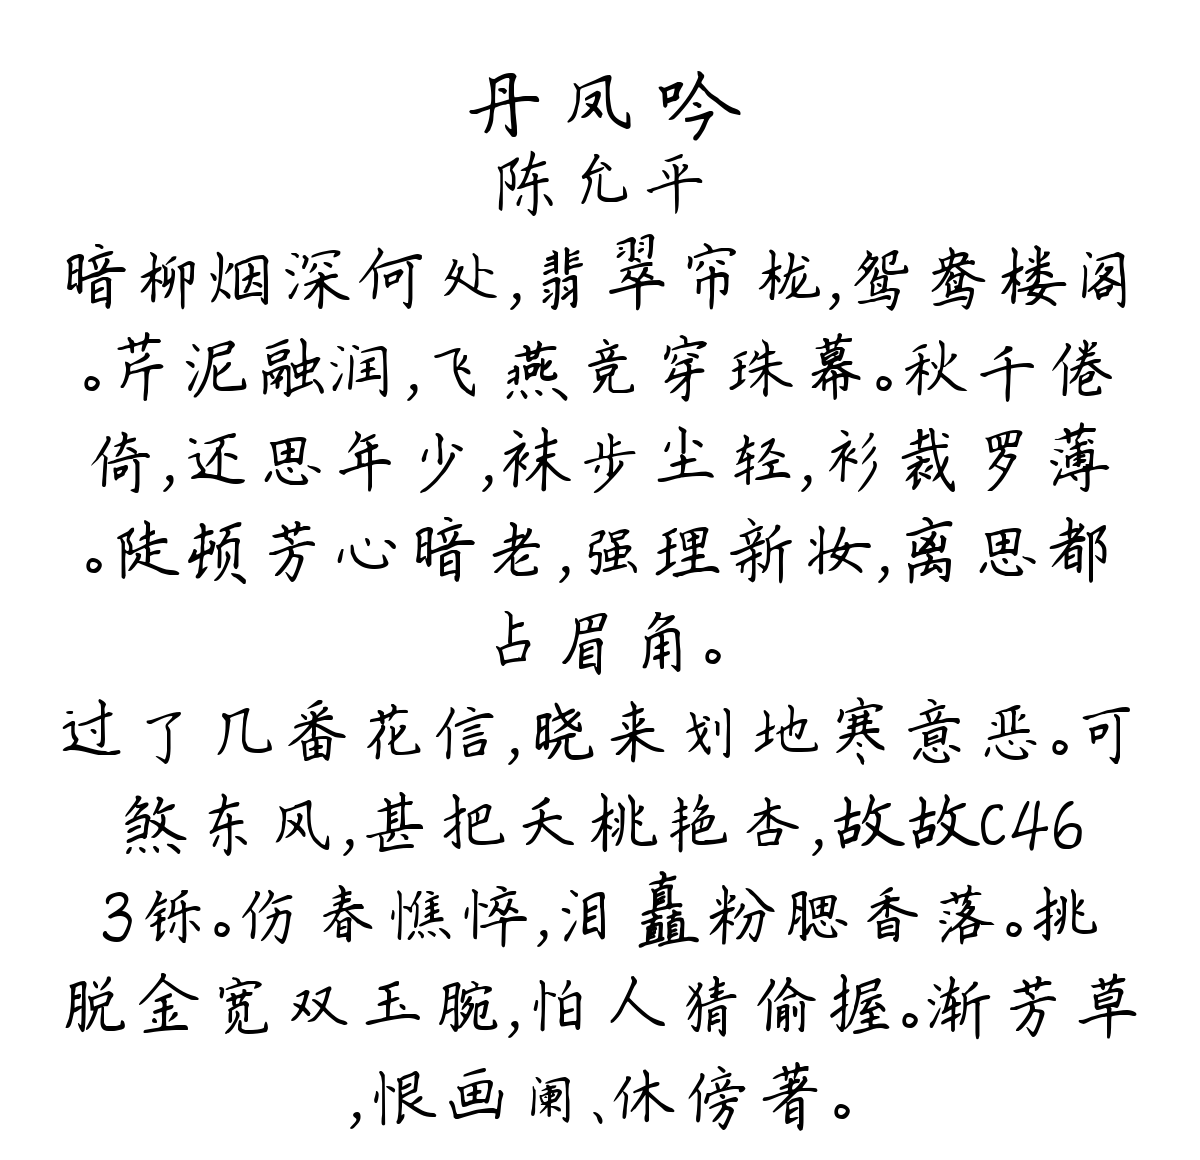 丹凤吟
陈允平
暗柳烟深何处,翡翠帘栊,鸳鸯楼阁
。芹泥融润,飞燕竞穿珠幕。秋千倦
倚,还思年少,袜步尘轻,衫裁罗薄
。陡顿芳心暗老,强理新妆,离思都
占眉角。
过了几番花信,晓来划地寒意恶。可
煞东风,甚把夭桃艳杏,故故C46
3铄。伤春憔悴,泪矗粉腮香落。挑
脱金宽双玉腕,怕人猜偷握。渐芳草
,恨画阑、休傍著。